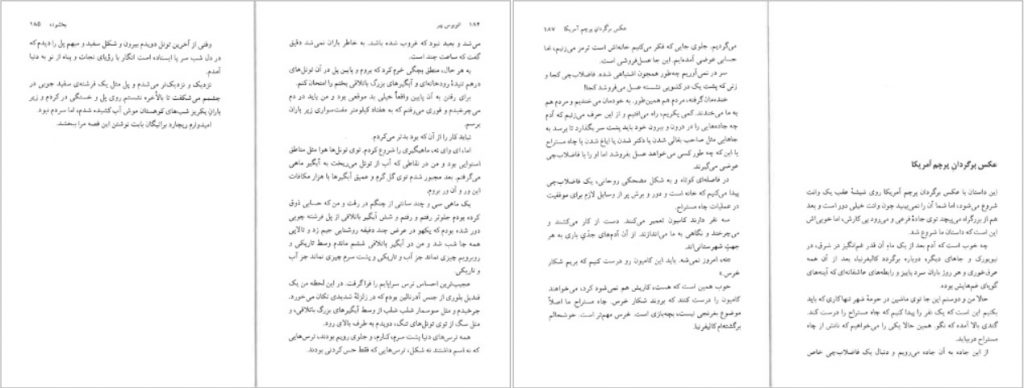 ۱۸۴ اتوبوس پیر
می‌شد و بعید نبود که غروب شده باشد. به خاطر باران نمی‌شد دقیق
گفت که ساعت چند است.
به هر حال، منطق بچگی خرم کرد که بروم و پایین پل در آن تونل‌های
درهم تنیدهٔ رودخانه‌ای و آبگیرهای بزرگ باتلاقی بختم را امتحان کنم.
برای رفتن به آن پایین واقعاً خیلی بد موقعی بود و من باید در دم
می‌چرخیدم و فوری می‌رفتم که به هفتاد کیلومتر مفت‌سواری زیر باران
برسم.
نباید کار را از آن که بود بدتر می‌کردم.
اما، ای وای نه، ماهیگیری را شروع کردم. توی تونل‌ها هوا مثل مناطق
استوایی بود و من در نقاطی که آب از تونل می‌ریخت به آبگیر ماهی
می‌گرفتم. بعد مجبور شدم توی گل گرم و عمیق آبگیرها با هزار مکافات
این ور و آن ور بروم.
یک ماهی سی و چند سانتی از چنگم در رفت و من که حسابی ذوق
کرده بودم جلوتر رفتم و رفتم و شش آبگیر باتلاقی از پل فرشته چوبی
دور شده بودم که یکهو در عرض چند دقیقه روشنایی جیم زد و تالاپی
همه جا شب شد و من در آبگیر باتلاقی ششم ماندم وسط تاریکی و
روبرویم چیزی نماند جز آب و تاریکی و پشت سرم چیزی نماند جز آب
و تاریکی.
عجیب‌ترین احساس ترس سراپایم را فراگرفت. در این لحظه من یک
قندیل بلوری از جنس آدرنالین بودم که در زلزلهٔ شدیدی تکان می‌خورد.
چرخیدم و مثل سوسمار شلپ شلپ از وسط آبگیرهای بزرگ باتلاقی، و
مثل سگ از توی تونل‌های تنگ، دویدم به طرف بالای رود.
همه ترس‌های دنیا پشت سرم، کنارم، و جلوی رویم بودند، ترس‌هایی
که نه اسم داشتند نه شکل، ترس‌هایی که فقط حس کردنی بودند.
۱۸۵
وقتی از آخرین تونل دویدم بیرون و شکل سفید و مبهم پل را دیدم که
در دل شب سر پا ایستاده است انگار با رؤیای نجات و پناه از نو به دنیا
آمدم.
نزدیک و نزدیک‌تر می‌شدم و پل مثل یک فرشته‌ای سفید چوبی در
چشمم می‌شکفت تا بالأخره نشستم روی پل و خستگی در کردم و زیر
باران یکریز شب‌های کوهستان موش آب کشیده شدم، اما سردم نبود.
امیدوارم ریچارد براتیگان بابت نوشتن این قصه مرا ببخشد.
عکس برگردان پرچم آمریکا
این داستان با عکس برگردان پرچم آمریکا روی شیشهٔ عقب یک وانت
شروع می‌شود، اما شما آن را نمی‌بینید چون وانت خیلی دور است و بعد
هم از بزرگراه می‌پیچد توی جادهٔ فرعی و می‌رود پی کارش، اما خوبی‌اش
این است که داستان ما شروع شد.
چه خوب است که آدم بعد از یک ماه آن قدر غم‌انگیز در شرق، در
نیویورک و جاهای دیگر، دوباره برگردد کالیفرنیا، بعد از آن همه
عرق‌خوری و هر روز باران سرد پاییز و رابطه‌های عاشقانه‌ای که آینه‌های
گویای غم‌هایش بوده.
حالا من و دوستم این جا توی ماشین در حومهٔ شهر تنها کاری که باید
بکنیم این است که یک نفر را پیدا کنیم که چاه مستراح را درست کند.
گندی بالا آمده که نگو. همین حالا یکی را می‌خواهیم که نانش از چاه
مستراح دربیاید.
از این جاده به آن جاده می‌رویم و دنبال یک فاضلاب‌چی خاص
عکس برگردان پرچم آمریکا ۱۸۷
می‌گردیم. جلوی جایی که فکر می‌کنیم خانه‌اش است ترمز می‌زنیم، اما
حسابی عوضی آمده‌ایم. این جا عسل‌فروشی است.
سر در نمی‌آوریم چه‌طور همچون اشتباهی شده. فاضلاب‌چی کجا و
زنی که پشت یک در کشویی نشسته عسل می‌فروشد کجا؟
خنده‌مان گرفته، مردم هم همین‌طور. به خودمان می‌خندیم و مردم هم
به ما می‌خندند. کمی یکریم، راه می‌افتیم و از این حرف می‌زنیم که آدم
چه جاده‌هایی را در درون و بیرون خود باید پشت سر بگذارد تا برسد به
جاهایی مثل صاحب بقالی شدن یا دکتر شدن یا ایاغ شدن با چاه مستراح
یا این که چه طور کسی می‌خواهد عسل بفروشد اما او را با فاضلاب‌چی
عوضی می‌گیرند.
در فاصله‌ای کوتاه و به شکل مضحکی روحانی، یک فاضلاب‌چی
پیدا می‌کنیم که خانه است و دور و برش پر از وسایل لازم برای موفقیت
در عملیات چاه مستراح.
سه نفر دارند کامیون تعمیر می‌کنند. دست از کار می‌کشند و
می‌چرخند و نگاهی به ما می‌اندازند. از آن آدم‌های جدّی بازی به هر
جهت شهرستانی‌اند.
«نه، امروز نمی‌شه. باید این کامیون رو درست کنیم که بریم شکار
خرس.»
خوب همین است که هست، کاریش هم نمی‌شود کرد، می‌خواهند
کامیون را درست کنند که بروند شکار خرس. چاه مستراح ما اصلاً
موضوع بغرنجی نیست، بچه‌بازی است. خرس مهم‌تر است. خوشحالم
برگشته‌ام کالیفرنیا.